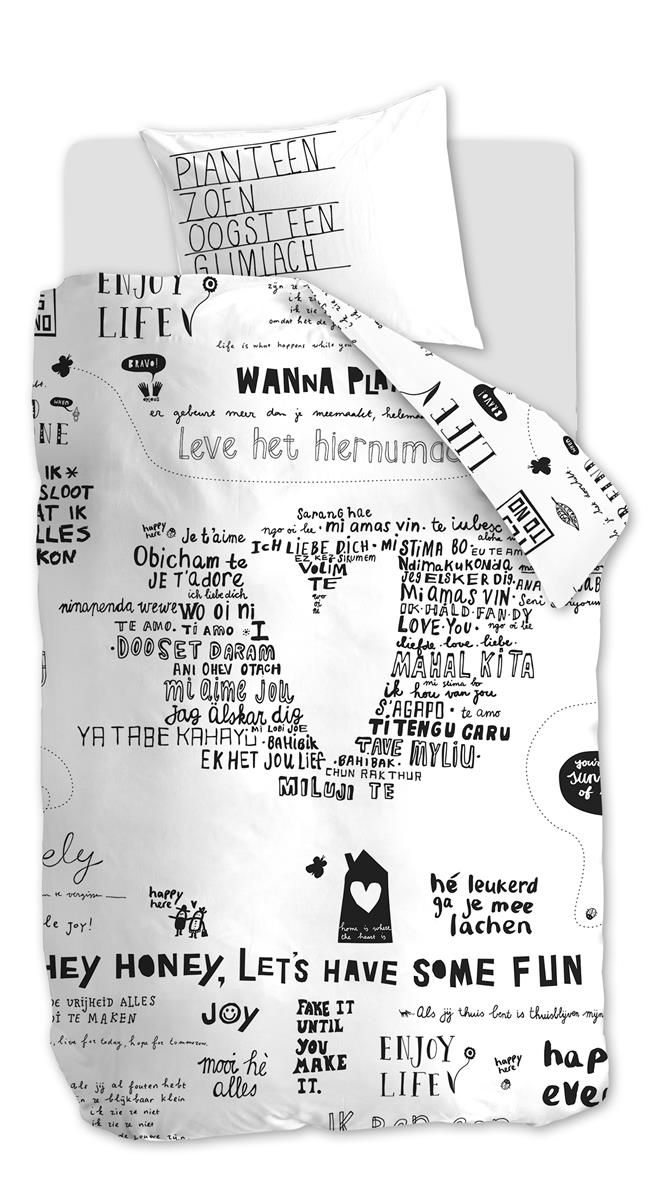 PLANT EEN
ZOEN
OOGST EEN
GLIMLACH
ENJOY
LIFE
zijn ze
ik zi
ik zie
omdat het de
life is what happens while you
BRAVO!
WANNA PLA
er gebeurt meer dan je meemaakt, helema
Leve het hiernumaa
LIFE
BRAVO!
WHEN
NE
IK*
SLOOT
AT IK
LLES
KON
Saranghae
happy
here
Je t'aime
ngo oi lee · mi amas vin · te iubesc
Ich LIEBE DICH · MI STIMA BO · EU TE AM
Obicham te
EZ KEZ SIRUMEM
VOLIM
TE
Ndimakukonda
JE T'adore
JEG ELSKER DIG · ANA
ich liebe dich
wo
oi
ni
Mi amas VIN · Seni
ninapenda wewe wo oi ni
IK · HALD · FAN · DY
TE AMO. Ti AMO * I
LOVE · YOU · ngo oi lee
· DOOSET DARAM
liefde · love · liebe ·
ANI OHEV OTACH
MAHAL KITA
mi aime jou
mi stima bo
ik hou van jou
Jag Älskar dig
S'AGAPO · te amo
YA TABE KAHAYU · MI LOBI JOE
BAHIBIK
TITENGU CARU
TAVE MYLIU ·
EK HET JOU LIEF · BAHIBAK ·
CHUN RAK THUR
MILUJI TE
you're
sun
of
ely
happy
here
le joy!
home is where
the heart is
hé leukerd
ga je mee
lachen
HEY HONEY, LET'S HAVE SOME FUN
DE VRIJHEID ALLES
OI TE MAKEN
, live for today, hope for tomorrow.
JOY
FAKE IT
UNTIL
YOU
MAKE
IT.
Als jij thuis bent is thuisblijven mijn
mooi hè
alles
ENJOY
LIFE
happy
here!
hap
eve
als jij al fouten hebt
zijn ze blijkbaar klein
ik zie ze niet
ik zie ze niet